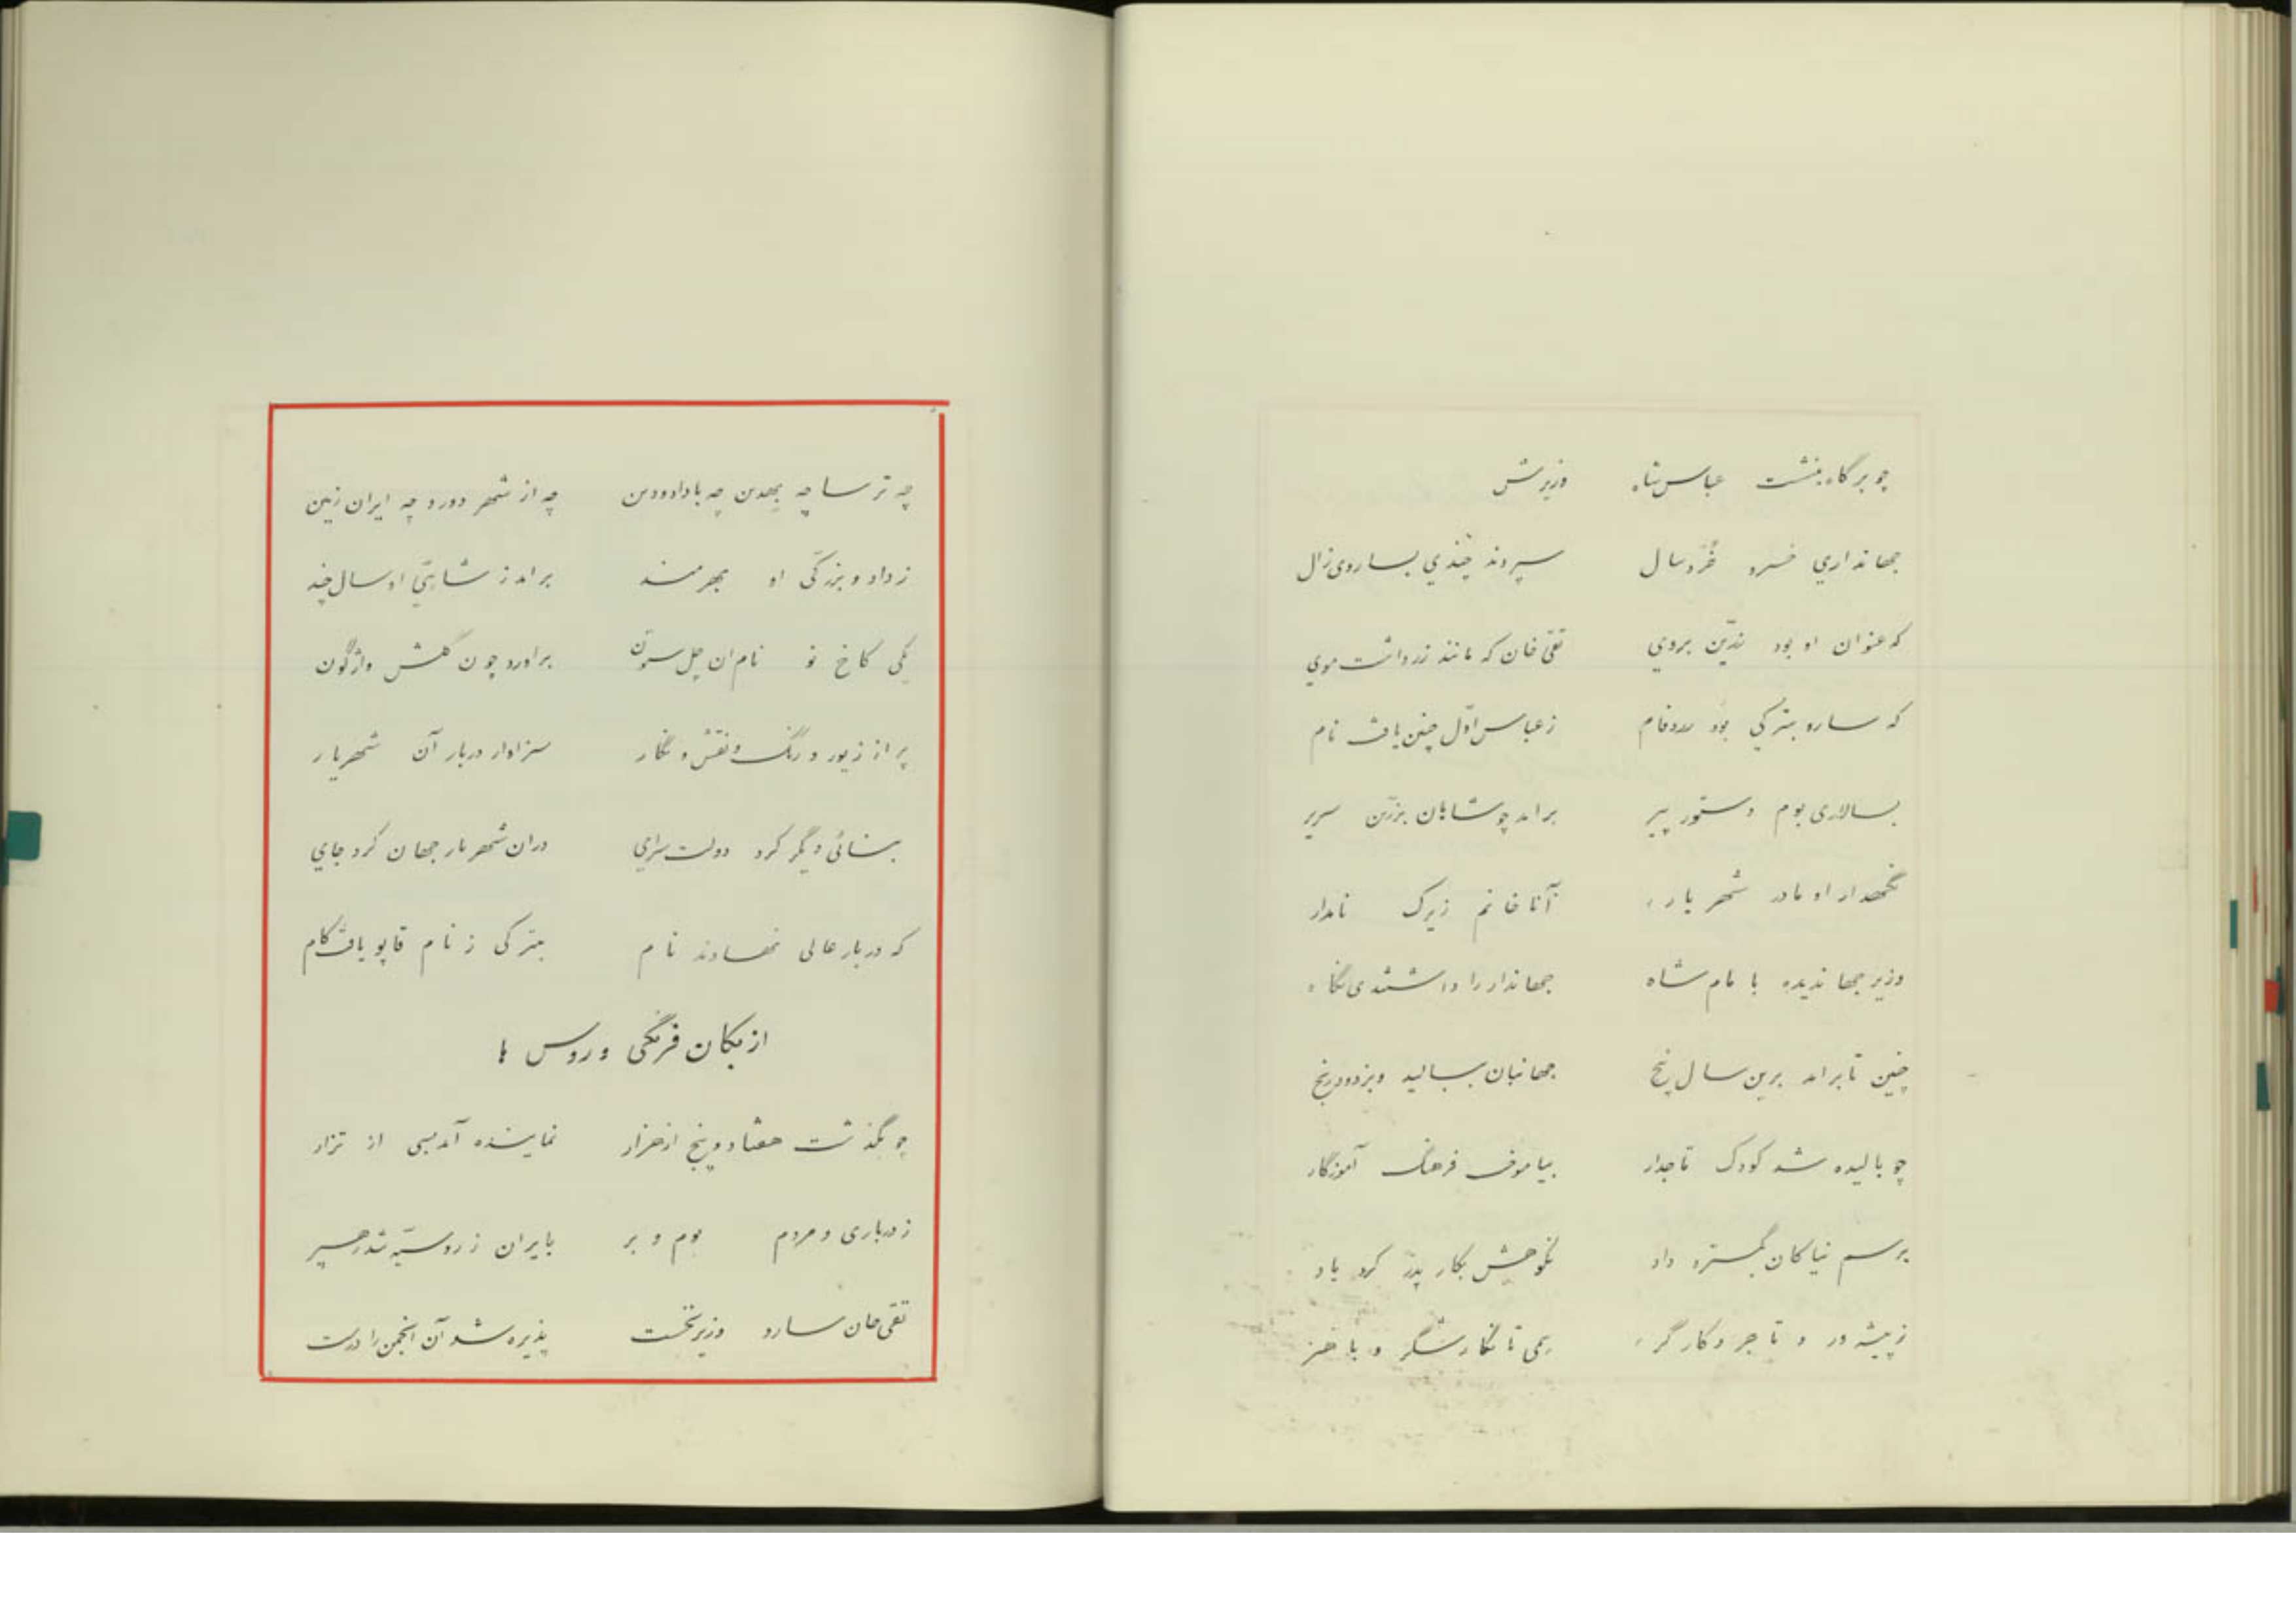 چو بر گاه بنشست عباس شاه وزیرش
جهانداری خسرو خُردسال سپردند چندی بساروی زال
که عنوان او بود زرّین بروی تقی خان که مانند زر داشت موی
که سارو بترکی بود زردفام ز عباس اوّل چنین یافت نام
بسالاری بوم دستور پیر برامد چو شاهان بزرّین سریر
نگهدار او مادر شهریار آنا خانم زیرک نامدار
وزیر جهاندیده با مام شاه جهاندار را داشتندی نگاه
چنین تا برامد برین سال پنج جهانبان ببالید و بزدود رنج
چو بالیده شد کودک تاجدار بیاموخت فرهنگ آموزگار
برسم نیاکان بگسترد داد نکوهش بکار پدر کرد یاد
ز پیشه‌ور و تاجر و کارگر همی تا نگارشگر و با هنر
چه ترسا چه بهدین چه با داد و دین چه از شهر دور و چه ایران زمین
ز داد و بزرگی او بهرمند برامد ز شاهیّ او سال چند
یکی کاخ نو نام ان چل ستون براورد چون گلشن واژگون
پر از زیور و رنگ و نقش و نگار سزاوار دربار آن شهریار
بنائی دیگر کرد دولت سرای دران شهریار جهان کرد جای
که دربار عالی نهادند نام بترکی ز نام قاپو یافت کام
از یکان فرنگی و روس ها
چو بگذشت هفتاد و پنج از هزار نماینده آمد بسی از تزار
ز درباری و مردم بوم و بر بایران ز روسیّه شد رهسپر
تقی خان سارو وزیر نخست پذیره شد آن انجمن را درست